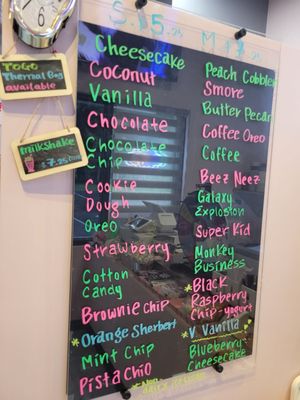 TOGO
Thermal Bag
available
milkshake
$7.25
S. $5.25
Cheesecake
Coconut
Vanilla
Chocolate
Chocolate
Chip
Cookie
Dough
Oreo
Strawberry
Cotton
Candy
Brownie Chip
*Orange Sherbert
Mint Chip
Pistachio
M $7.25
Peach Cobbler
Smore
Butter Pecan
Coffee Oreo
Coffee
Beez Neez
Galaxy
Explosion
Super Kid
Monkey
Business
*Black
Raspberry
Chip-yogurt
*V Vanilla
Blueberry
Cheesecake
*Non